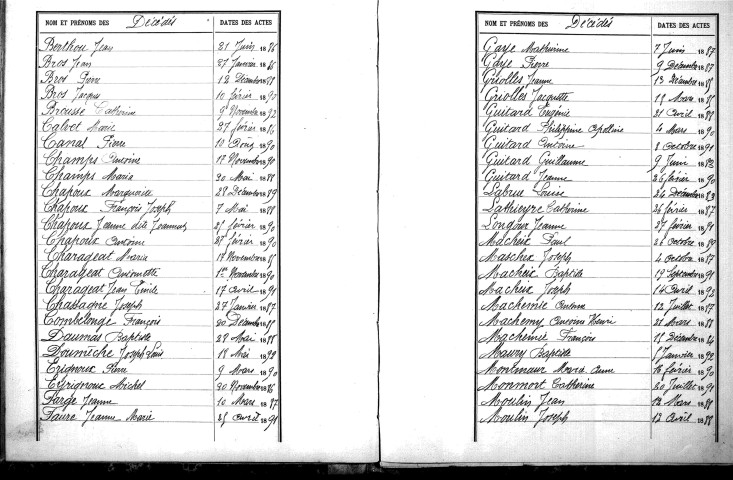 NOM ET PRÉNOMS DES Décédés DATES DES ACTES
Berthou Jean 21 Juin 1886
Bros Jean 27 Janvier 18
Bros Pierre 12 Décembre 1888
Bros Jacques 10 février 1890
Brousse Catherine 9 Novembre 1892
Calvet Marie 27 février 18
Canal Pierre 10 Août 1890
Champs Antoine 17 Novembre 1890
Champs Maria 20 Mai 1888
Chapoux Marguerite 28 Décembre 1889
Chapoux François Joseph 7 Mai 1888
Chapoux Jeanne dite Jeannette février 1890
Chapoux Antoine février 1890
Charageat Marie 17 Novembre 18
Charageat Antoinette 1er Novembre 1890
Charageat Jean Emile 17 Avril 1891
Chassagne Joseph 27 Janvier 1887
Combelonge François 20 Décembre 1888
Daumas Baptiste 29 Mai 1888
Doumèche Joseph Louis 18 Mai 1892
Erignoux Pierre 9 Mars 1890
Eyrignoux Michel 30 Novembre 1886
Farge Jeanne 10 Mars 1887
Faure Jeanne Marie Avril 1891
NOM ET PRÉNOMS DES Décédés DATES DES ACTES
Gaye Mathurine 7 Juin 1887
Gaye Pierre 9 Décembre 1887
Griolles Jeanne 13 Décembre 1888
Griolles Jacquette 18 Mars 18
Guitard Eugénie 21 Avril 1888
Guitard Philippine Apolline 4 Mars 1890
Guitard Antoine 8 Octobre 1891
Guitard Guillaume 9 Juin 18
Guitard Jeanne 26 février 1890
Labrue Louise 24 Décembre 1883
Lathieyre Catherine 26 février 1887
Longour Jeanne 27 février 1891
Macheix Paul 26 Octobre 1889
Mascheix Joseph 4 Octobre 1887
Macheix Baptiste 19 Septembre 1891
Macheix Joseph 14 Avril 1892
Machemie Antoine 12 Juillet 1887
Machemy Antoine Henri 21 Mars 1888
Machemie François 15 Décembre 1884
Maury Baptiste Janvier 1892
Montmaur Marie Anne 16 février 1890
Monmort Catherine 20 Juillet 1891
Moulin Jean 12 Mars 1888
Moulin Joseph 12 Avril 1888